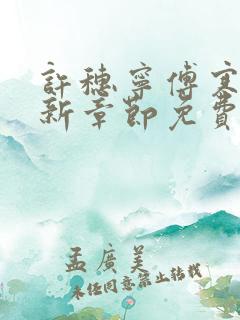 許穗寧傅寒
新章節免費
孟廣美
未經同意禁止轉載